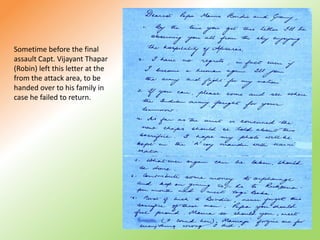 Sometime before the final
assault Capt. Vijayant Thapar
(Robin) left this letter at the
from the attack area, to be
handed over to his family in
case he failed to return.
Dearest Papa, Mama, Birdie and Granny,
By the time you get this letter I'll be
observing you all from the sky enjoying
the hospitality of Apsaras.
I have no regrets, in fact even if
I become a human again I'll join
the army and fight for my nation.
If you can, please come and see where
the Indian army fought for your
tomorrow.
As far as the unit is concerned the
new chaps should be told about this
sacrifice. I hope my photo will be
kept in the A coy mandir with Karni
Mata.
Whatever organ can be taken should
be done.
Contribute some money to orphanage
and keep on giving 50/- Rs to Ruksana
per month and meet Yogi Baba.
Best of luck to Birdie, never forget this
sacrifice of these men. Papa you should
feel proud. Mama so should you, meet
(I loved her). Mamaji forgive me for
everything wrong I did.